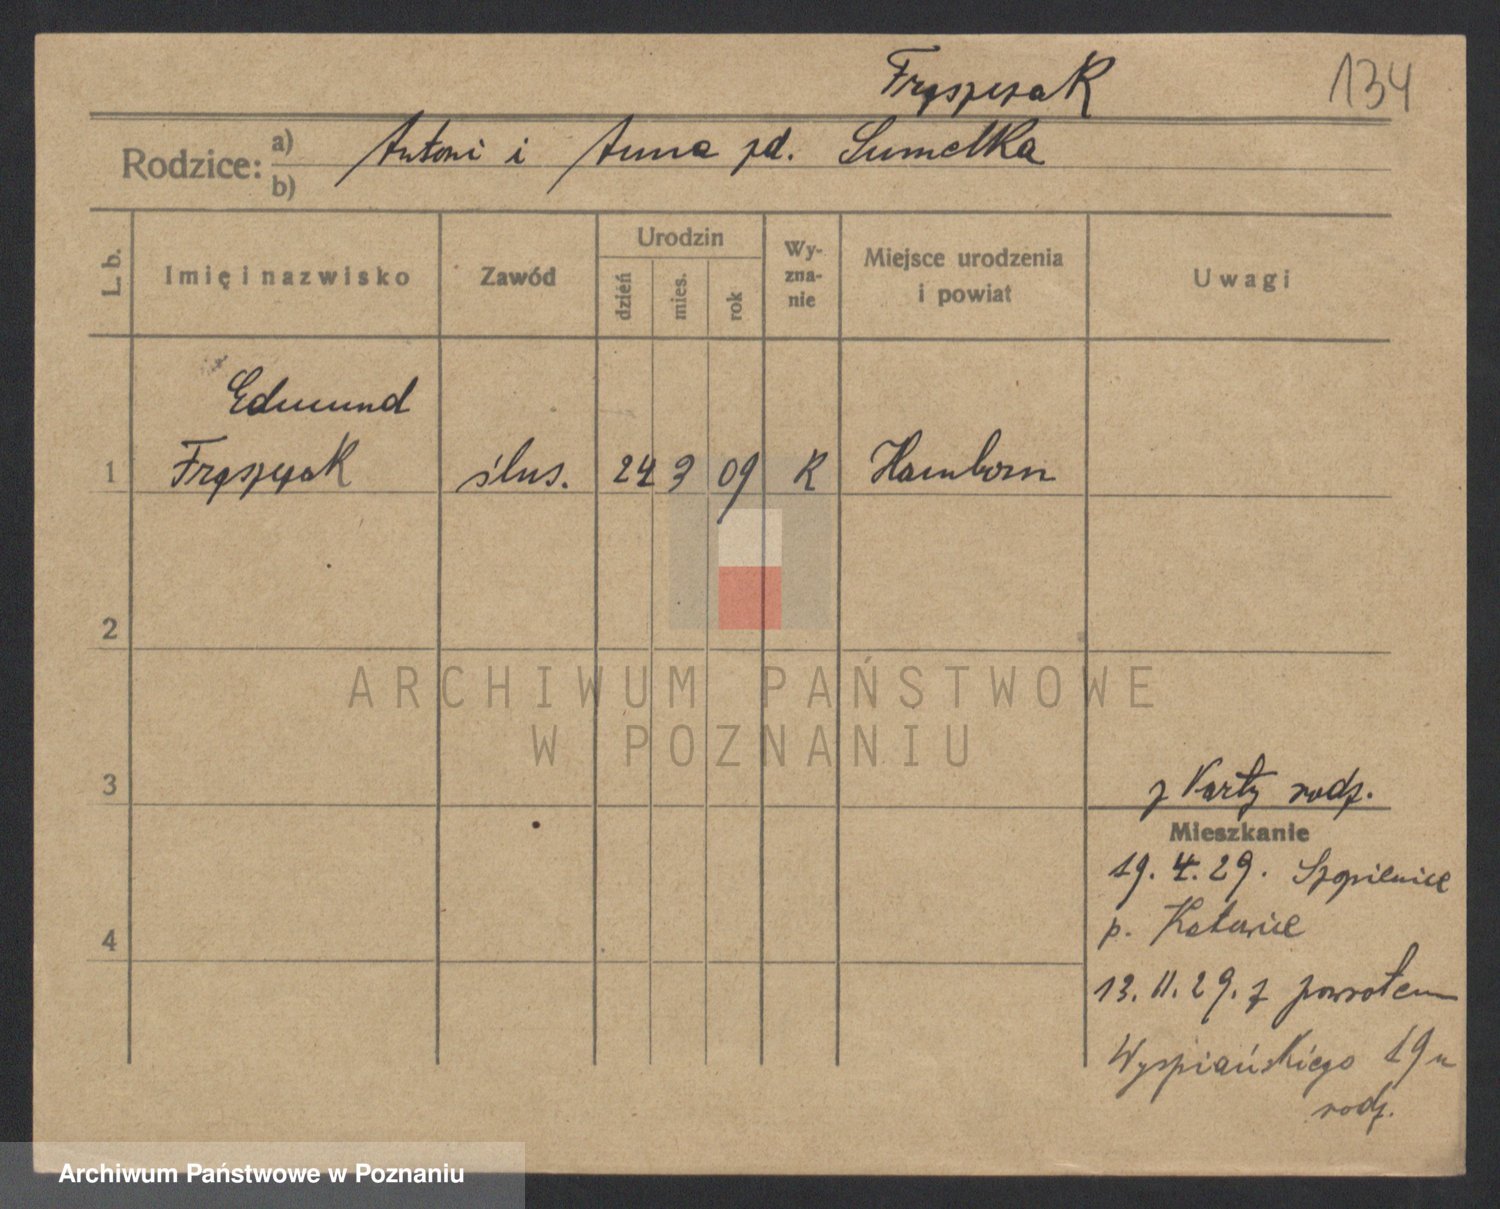 Frąszczak 134
Rodzice: a) Antoni i Anna zd. Sumelka
b)
L. b. Imię i nazwisko Zawód Urodzin dzień mies. rok Wy-zna-nie Miejsce urodzenia i powiat Uwagi
Edmund
1 Frąszczak ślus. 24 3 09 K Hamborn
2
ARCHIWUM PAŃSTWOWE
W POZNANIU
3 z karty rodz.
Mieszkanie
19. 4. 29. Szopienice
4 p. Katowice
13. 11. 29. z powrotem
Wyspiańskiego 19 u
rodz.
Archiwum Państwowe w Poznaniu